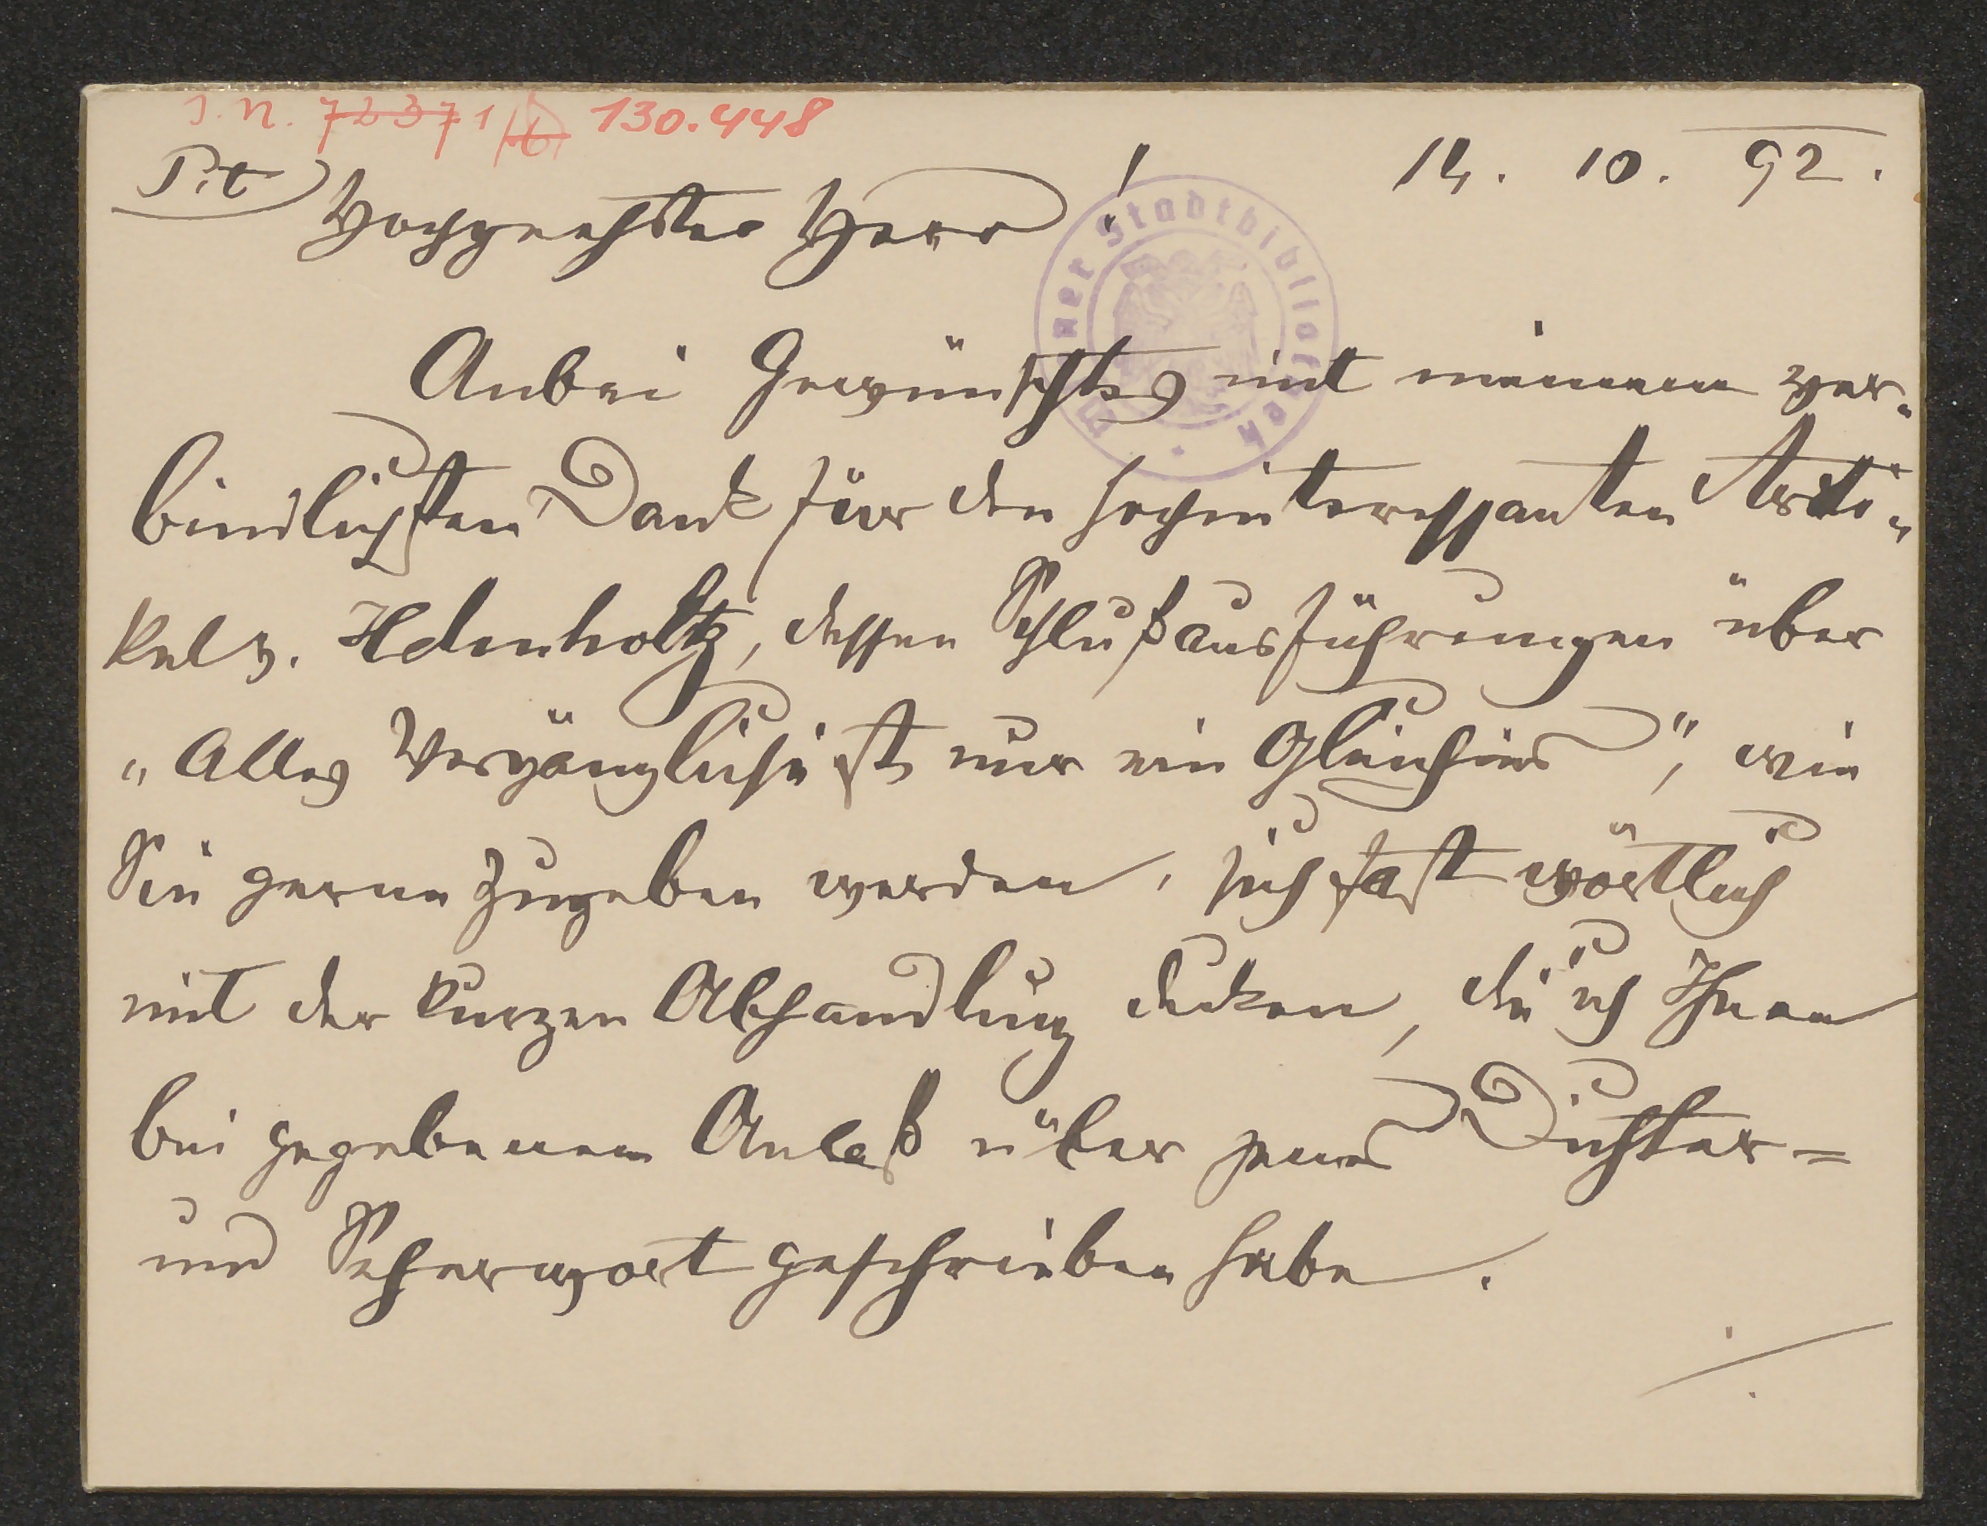 J. N. 72371/b 130.448
P.t. 14. 10. 92.
Hochgeehrter Herr!
Wiener Stadtbibliothek
Anbei Gewünschtes mit meinem ver-
bindlichsten Dank für den hochinteressanten Arti-
kel v. Helmholtz, dessen Schlußausführungen über
„Alles Vergängliche ist nur ein Gleichnis", wie
Sie gerne zugeben werden, sich fast wörtlich
mit der kurzen Abhandlung decken, die ich Ihnen
bei gegebenem Anlaß über jenes Dichter=
und Seherwort geschrieben habe.